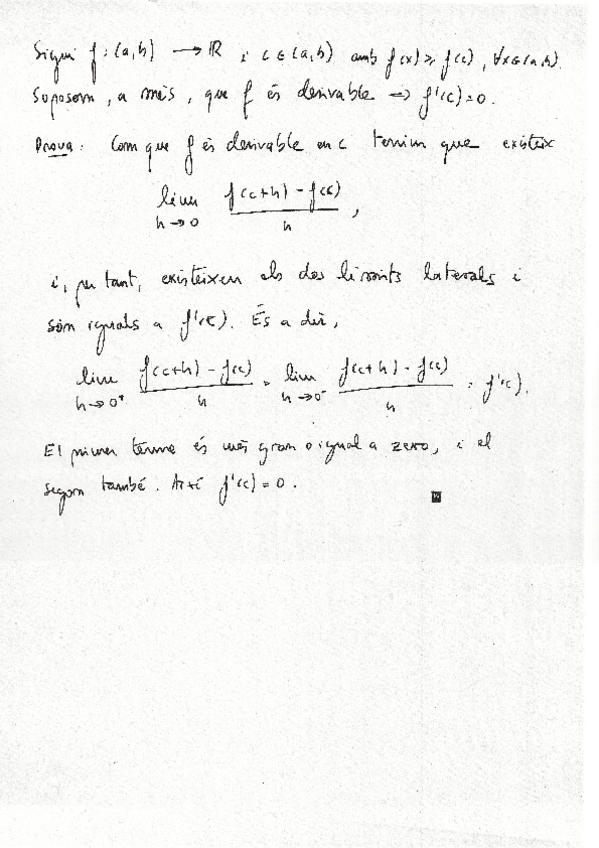 Sigui f : (a,b) → ℝ i c ∈ (a,b) amb f(x) ≥ f(c), ∀x∈(a,b).
Suposem, a més, que f és derivable → f'(c)=0.
Prova: Com que f és derivable en c tenim que existeix
lim h→0 (f(c+h) - f(c))/h ,
i, per tant, existeixen els dos límits laterals i
són iguals a f'(c). És a dir,
lim h→0⁺ (f(c+h) - f(c))/h = lim h→0⁻ (f(c+h) - f(c))/h = f'(c).
El primer terme és més gran o igual a zero, i el
segon també. Així f'(c) = 0.